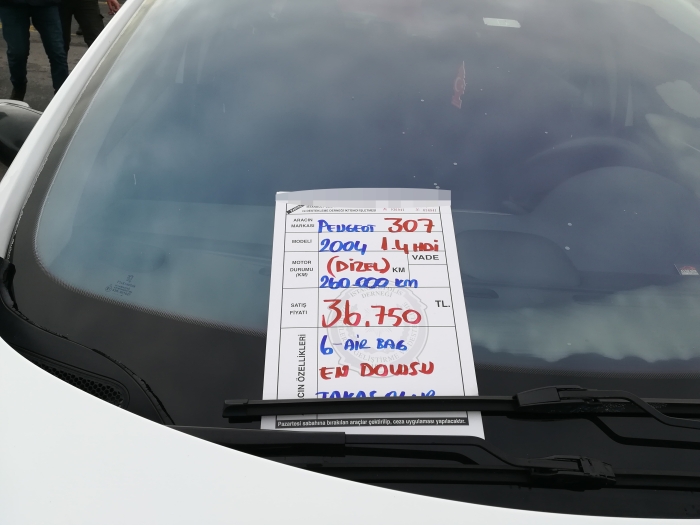 ARACIN MARKASI PEUGEOT 307
MODELİ 2004 1.4 HDİ
MOTOR DURUMU (KM) (DİZEL) KM VADE
260.000 km
SATIŞ FİYATI 36.750 TL.
6-AİR BAG
EN DOLUSU
TAKAS OLUR
CIN ÖZELLİKLERİ
Pazartesi sabahına bırakılan araçlar çektirilip, ceza uygulaması yapılacaktır.